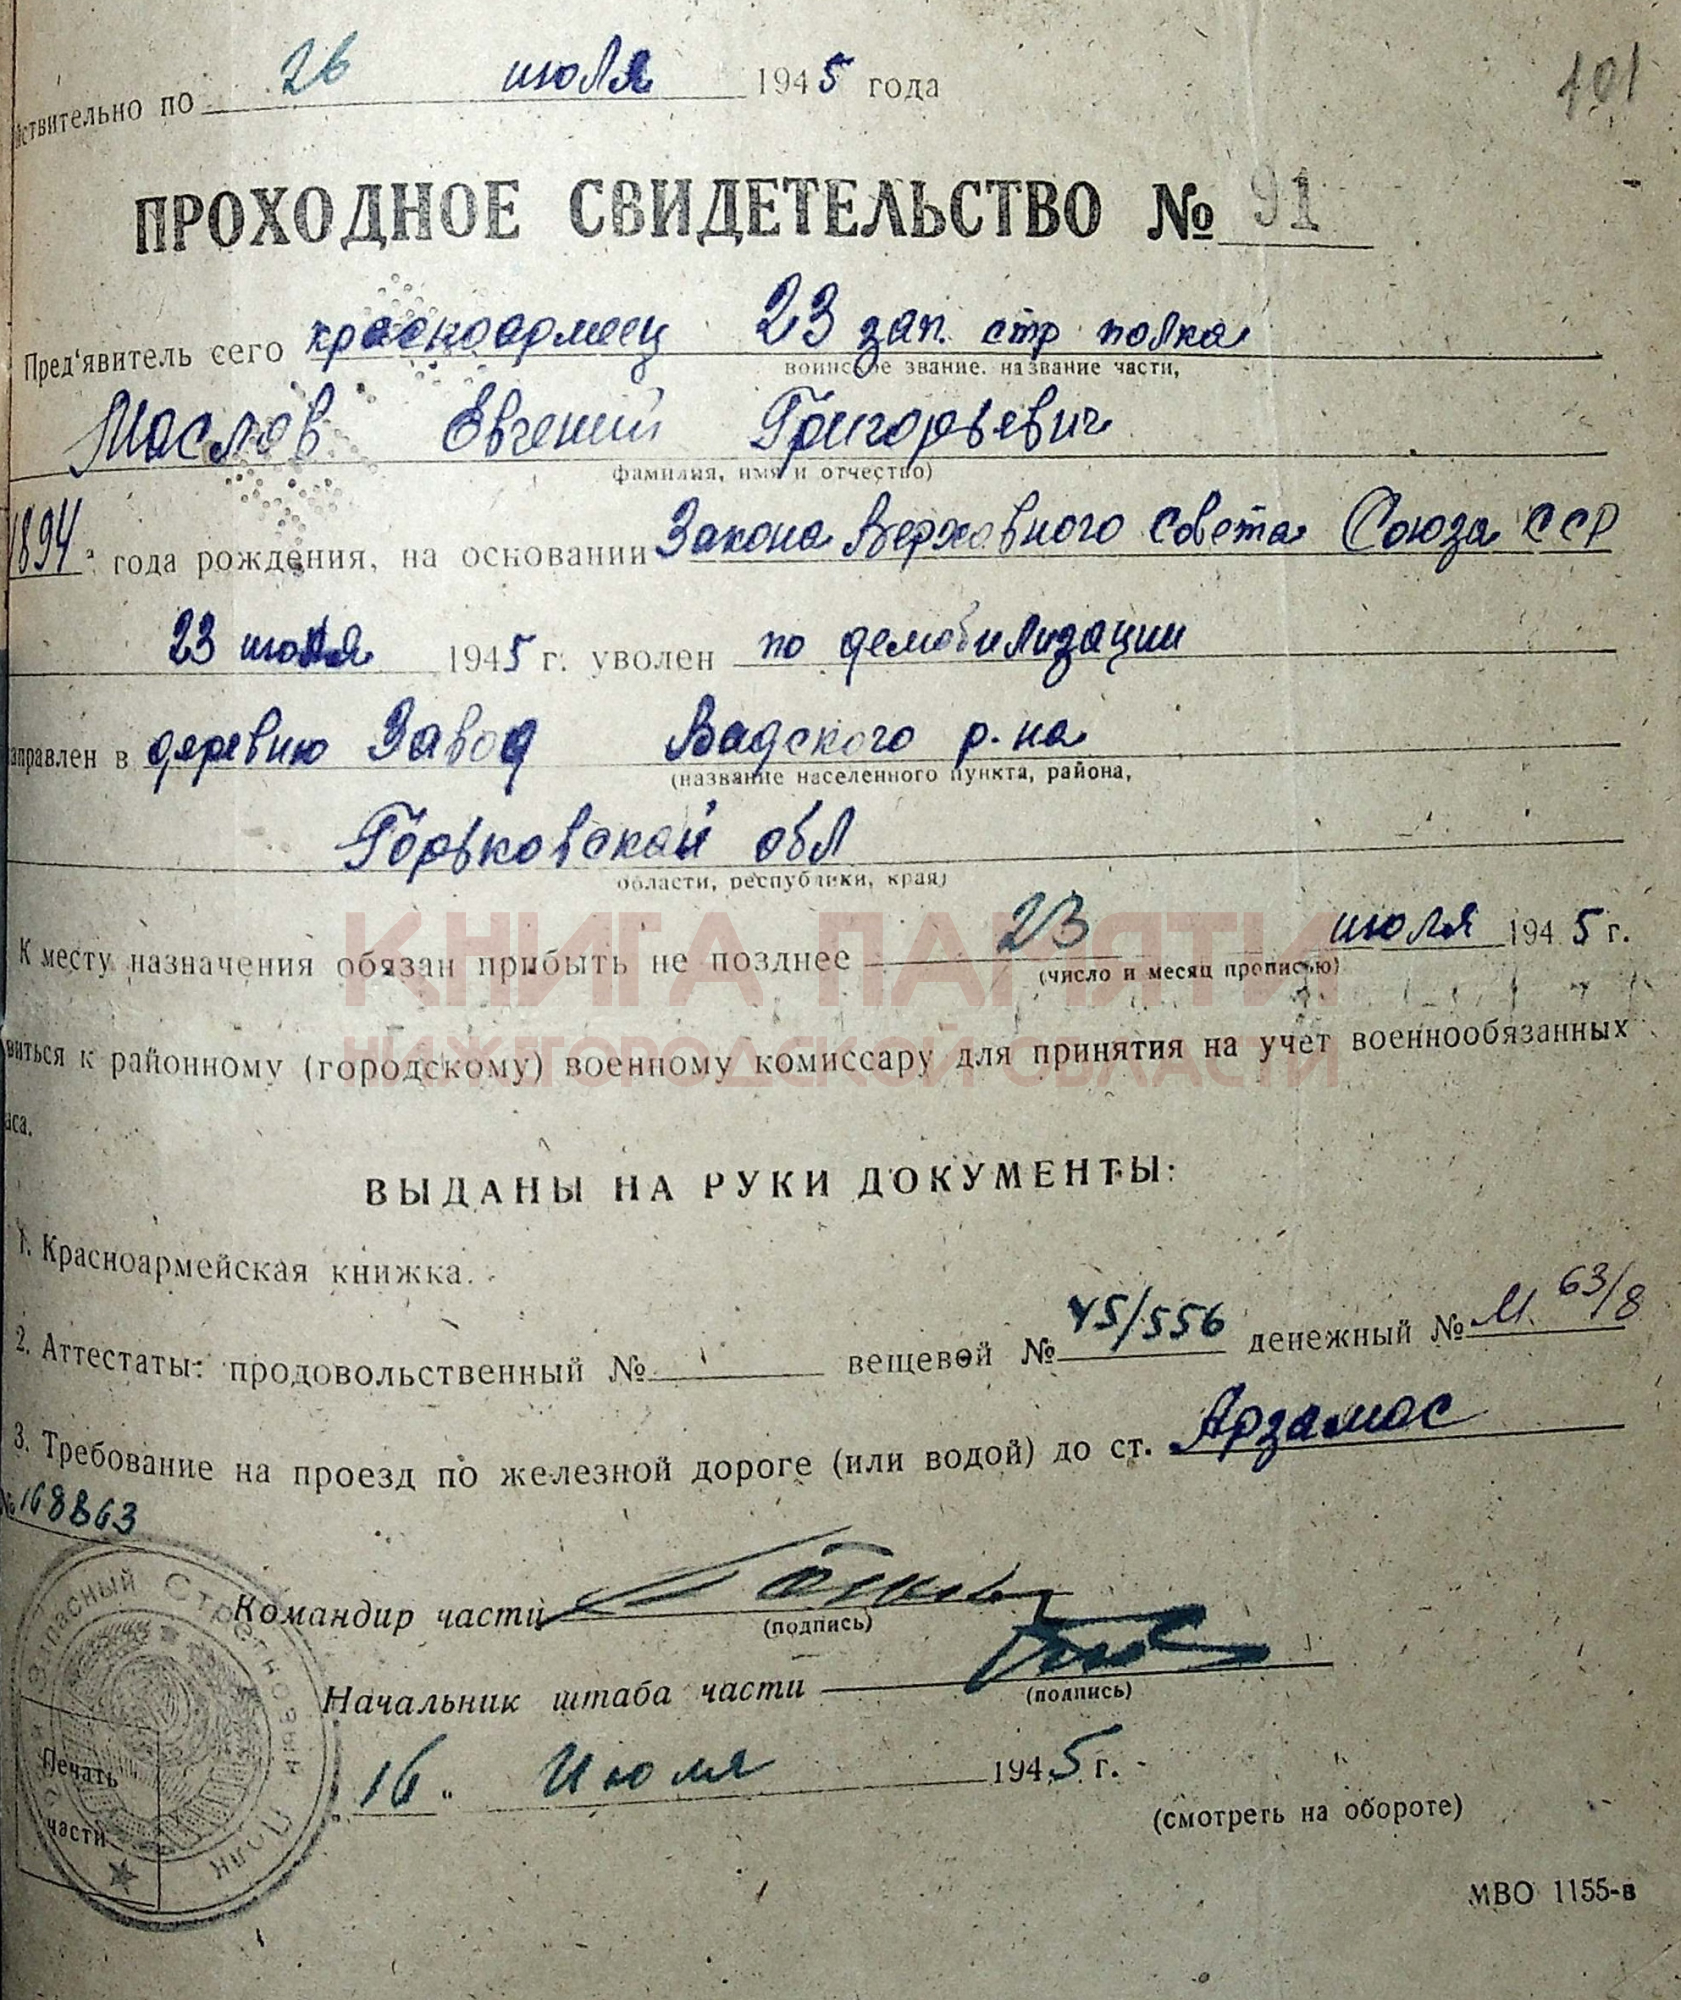 йствительно по 26 июля 1945 года
101
ПРОХОДНОЕ СВИДЕТЕЛЬСТВО № 91
Пред'явитель сего красноармеец 23 зап. стр полка
воинское звание. название части,
Маслов Евгений Григорьевич
фамилия, имя и отчество)
1894 года рождения, на основании Закона Верховного Совета Союза ССР
23 июля 1945 г. уволен по демобилизации
направлен в деревню Завод Вадского р-на
(название населенного пункта, района,
Горьковской обл
области, республики, края)
К месту назначения обязан прибыть не позднее 23 июля 1945 г.
(число и месяц прописью)
КНИГА ПАМЯТИ
виться к районному (городскому) военному комиссару для принятия на учет военнообязанных
НИЖГОРОДСКОЙ ОБЛАСТИ
аса.
ВЫДАНЫ НА РУКИ ДОКУМЕНТЫ:
1. Красноармейская книжка.
2. Аттестаты: продовольственный № вещевой № 45/556 денежный № М 63/8
3. Требование на проезд по железной дороге (или водой) до ст. Арзамас
№ 168863
Запасный Стрелковый Полк
Командир части
(подпись)
Начальник штаба части
(подпись)
Печать части
„16" Июля 1945 г.
(смотреть на обороте)
МВО 1155-в